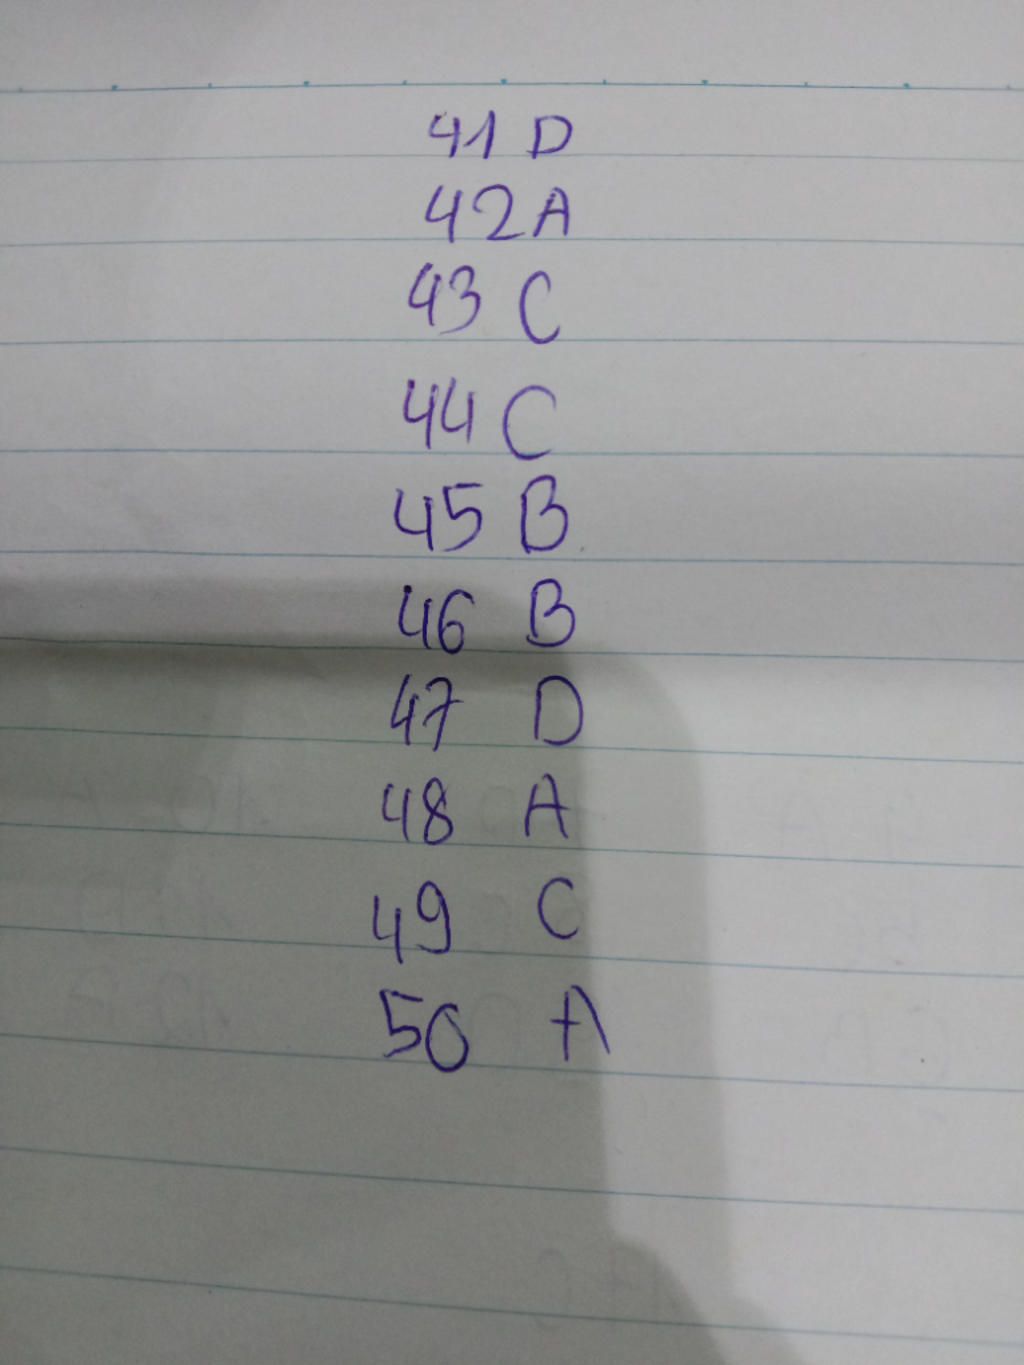 41 D
42 A
43 C
44 C
45 B
46 B
47 D
48 A
49 C
50 A